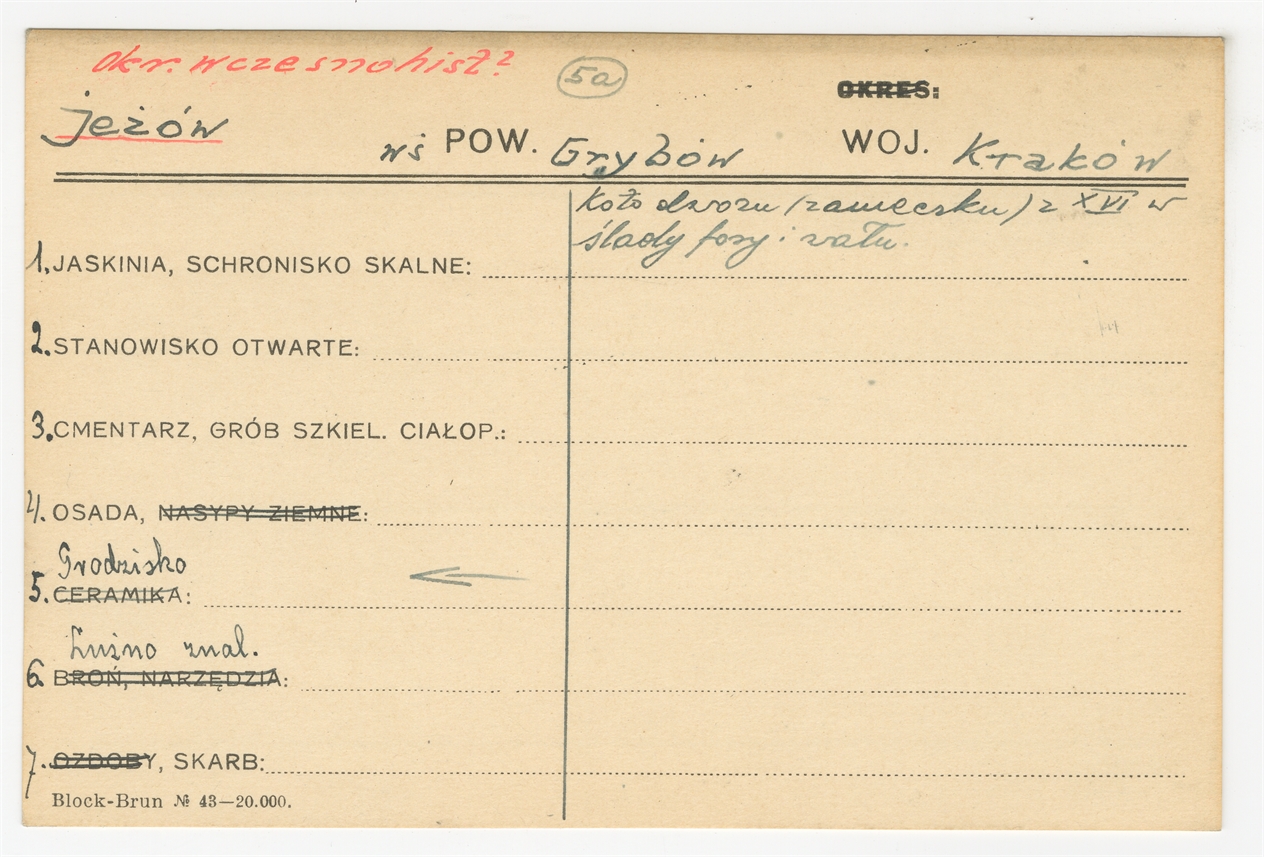 okr. wczesnohist?
5a
OKRES:
Jeżów
wś POW. Grybów WOJ. Kraków
Koło dworu (zameczku) z XVI w
ślady fosy i wału.
1. JASKINIA, SCHRONISKO SKALNE:
2. STANOWISKO OTWARTE:
3. CMENTARZ, GRÓB SZKIEL. CIAŁOP.:
4. OSADA, NASYPY ZIEMNE:
Grodzisko
5. CERAMIKA:
Luźno znal.
6. BROŃ, NARZĘDZIA:
7. OZDOBY, SKARB:
Block-Brun № 43—20.000.